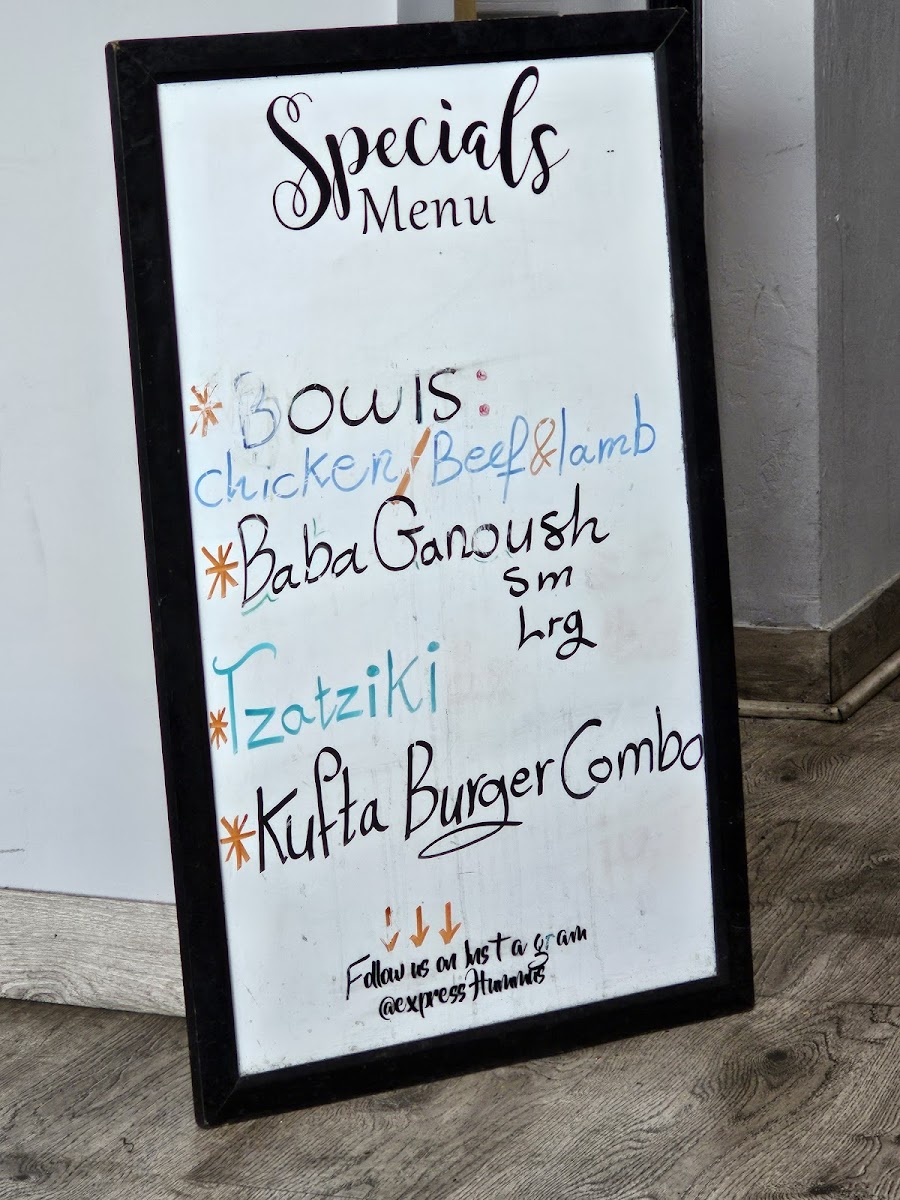 Specials
Menu
* Bowls:
chicken/Beef&lamb
* Baba Ganoush
Sm
Lrg
* Tzatziki
* Kufta Burger Combo
Follow us on Instagram
@expressHummus